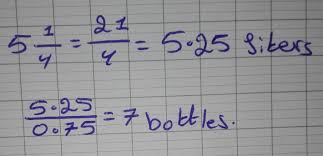 5 1/4 = 21/4 = 5.25 liters
5.25/0.75 = 7 bottles.